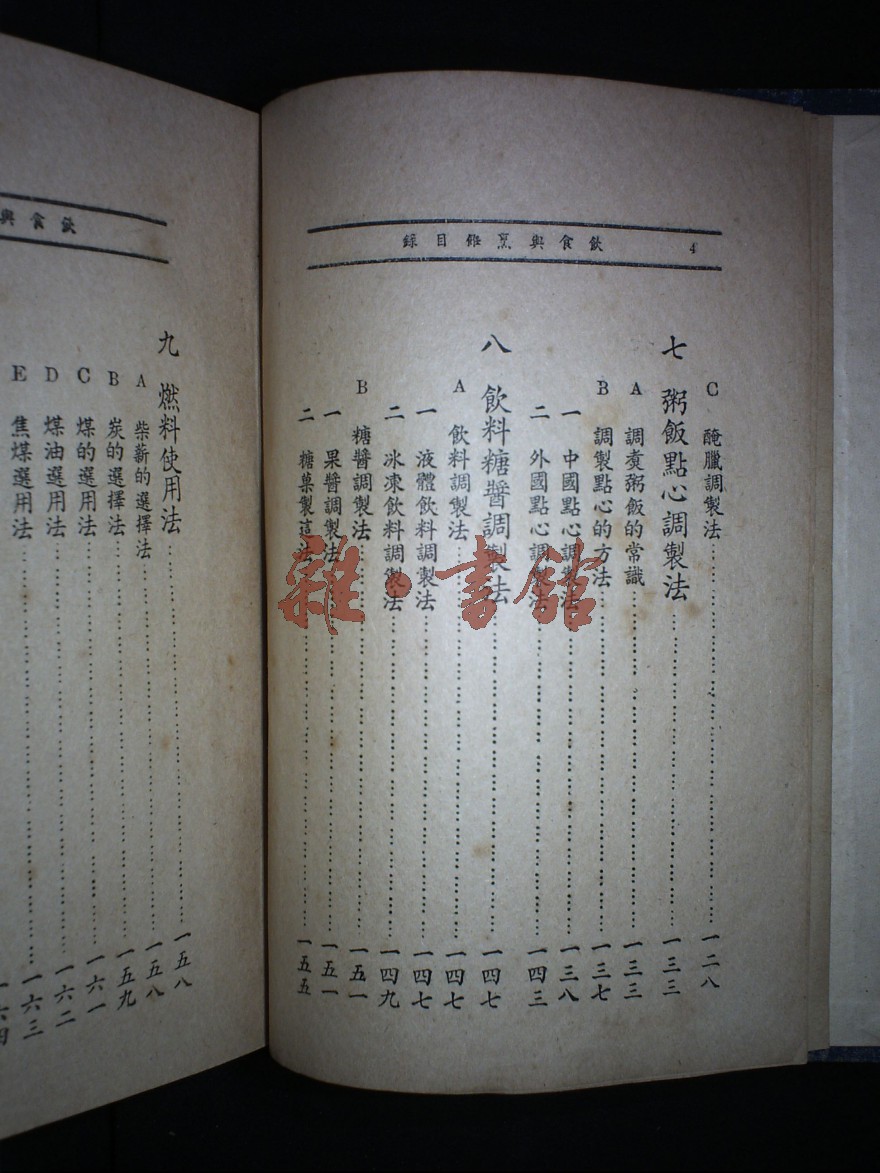 4 飲食與烹飪目錄
C 醃臘調製法……一二八
七 粥飯點心調製法……一三三
A 調煑粥飯的常識……一三三
B 調製點心的方法……一三七
一 中國點心調製法……一三八
二 外國點心調製法……一四三
八 飲料糖醬調製法……一四七
A 飲料調製法……一四七
一 液體飲料調製法……一四七
二 冰凍飲料調製法……一四九
B 糖醬調製法……一五一
一 果醬調製法……一五一
二 糖菓製這法……一五五
飲食與
九 燃料使用法……一五八
A 柴薪的選擇法……一五八
B 炭的選擇法……一五九
C 煤的選用法……一六一
D 煤油選用法……一六二
E 焦煤選用法……一六三
一六四
雜·書館